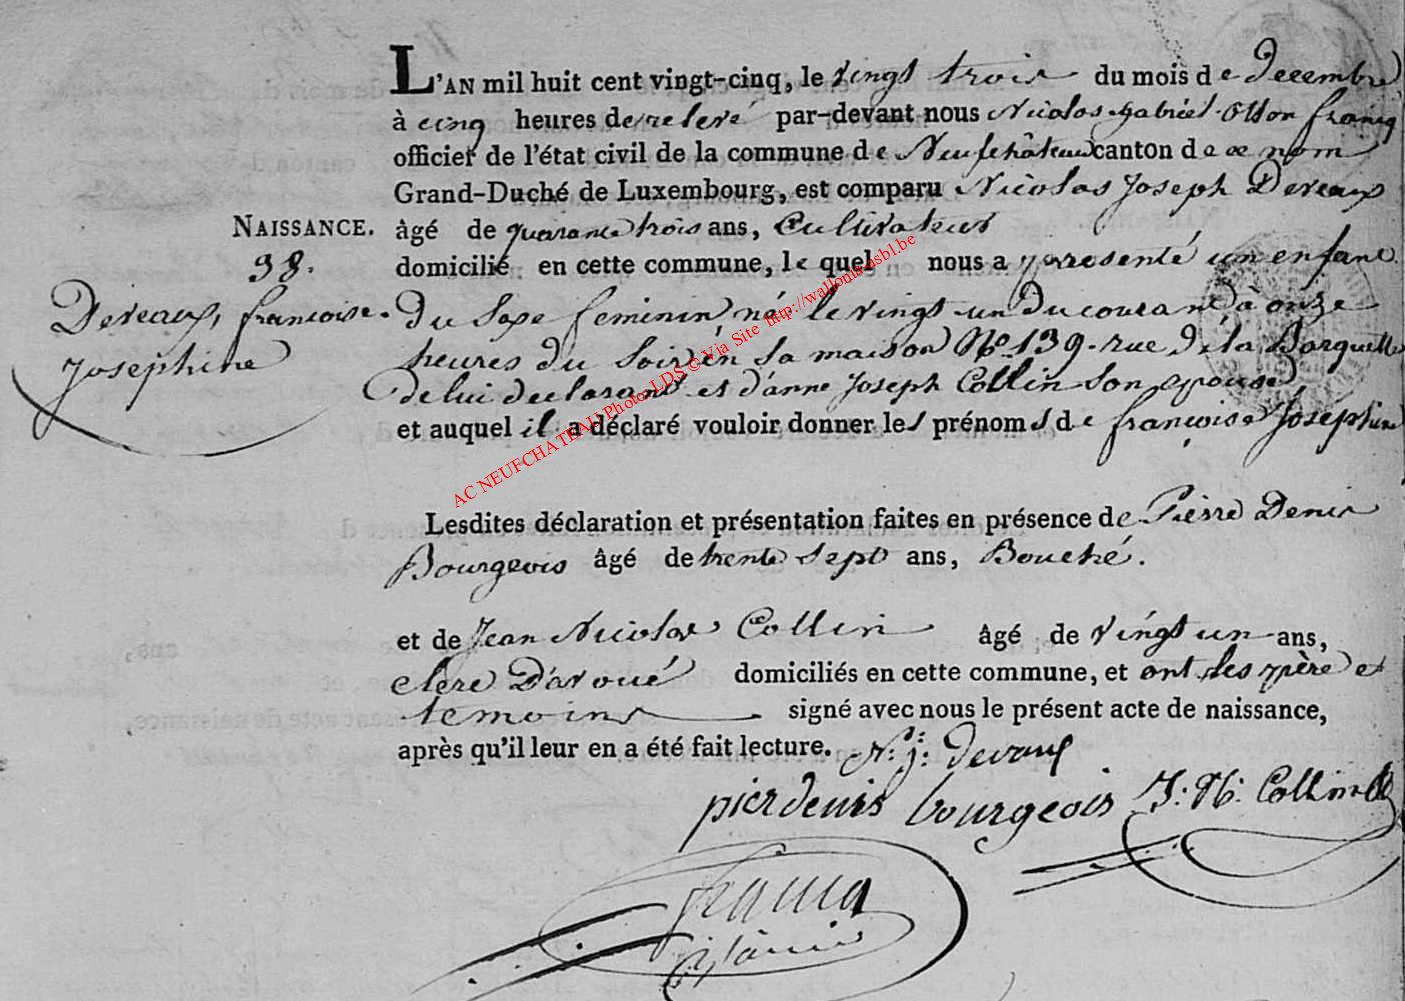 L'AN mil huit cent vingt-cinq, le vingt trois du mois de Decembre
à cinq heures de relevé par-devant nous Nicolas gabriel otton francq
officier de l'état civil de la commune de Neufchâteau canton de ce nom
Grand-Duché de Luxembourg, est comparu Nicolas Joseph Deveaux
NAISSANCE.
âgé de quarante trois ans, Cultivateur
38.
domicilié en cette commune, le quel nous a presenté un enfant
Deveaux, francoise
Josephine
du Sexe feminin né le vingt un du courant a onze
heures du Soir en sa maison No. 139. rue de la Barquette
de lui declarant et d'anne Joseph Collin son epouse
et auquel il a déclaré vouloir donner les prénoms de françoise Josephine
AC NEUFCHATEAU Photo LDS © Via Site http://wallonia-asbl.be
Lesdites déclaration et présentation faites en présence de Pierre Denis
Bourgeois âgé de trente sept ans, Bouché.
et de Jean Nicolas Collin âgé de vingt un ans,
clerc D'avoué domiciliés en cette commune, et ont les père et
temoins signé avec nous le présent acte de naissance,
après qu'il leur en a été fait lecture.
N: J: devaux
pierdenis bourgeois J: N: Collin
francq